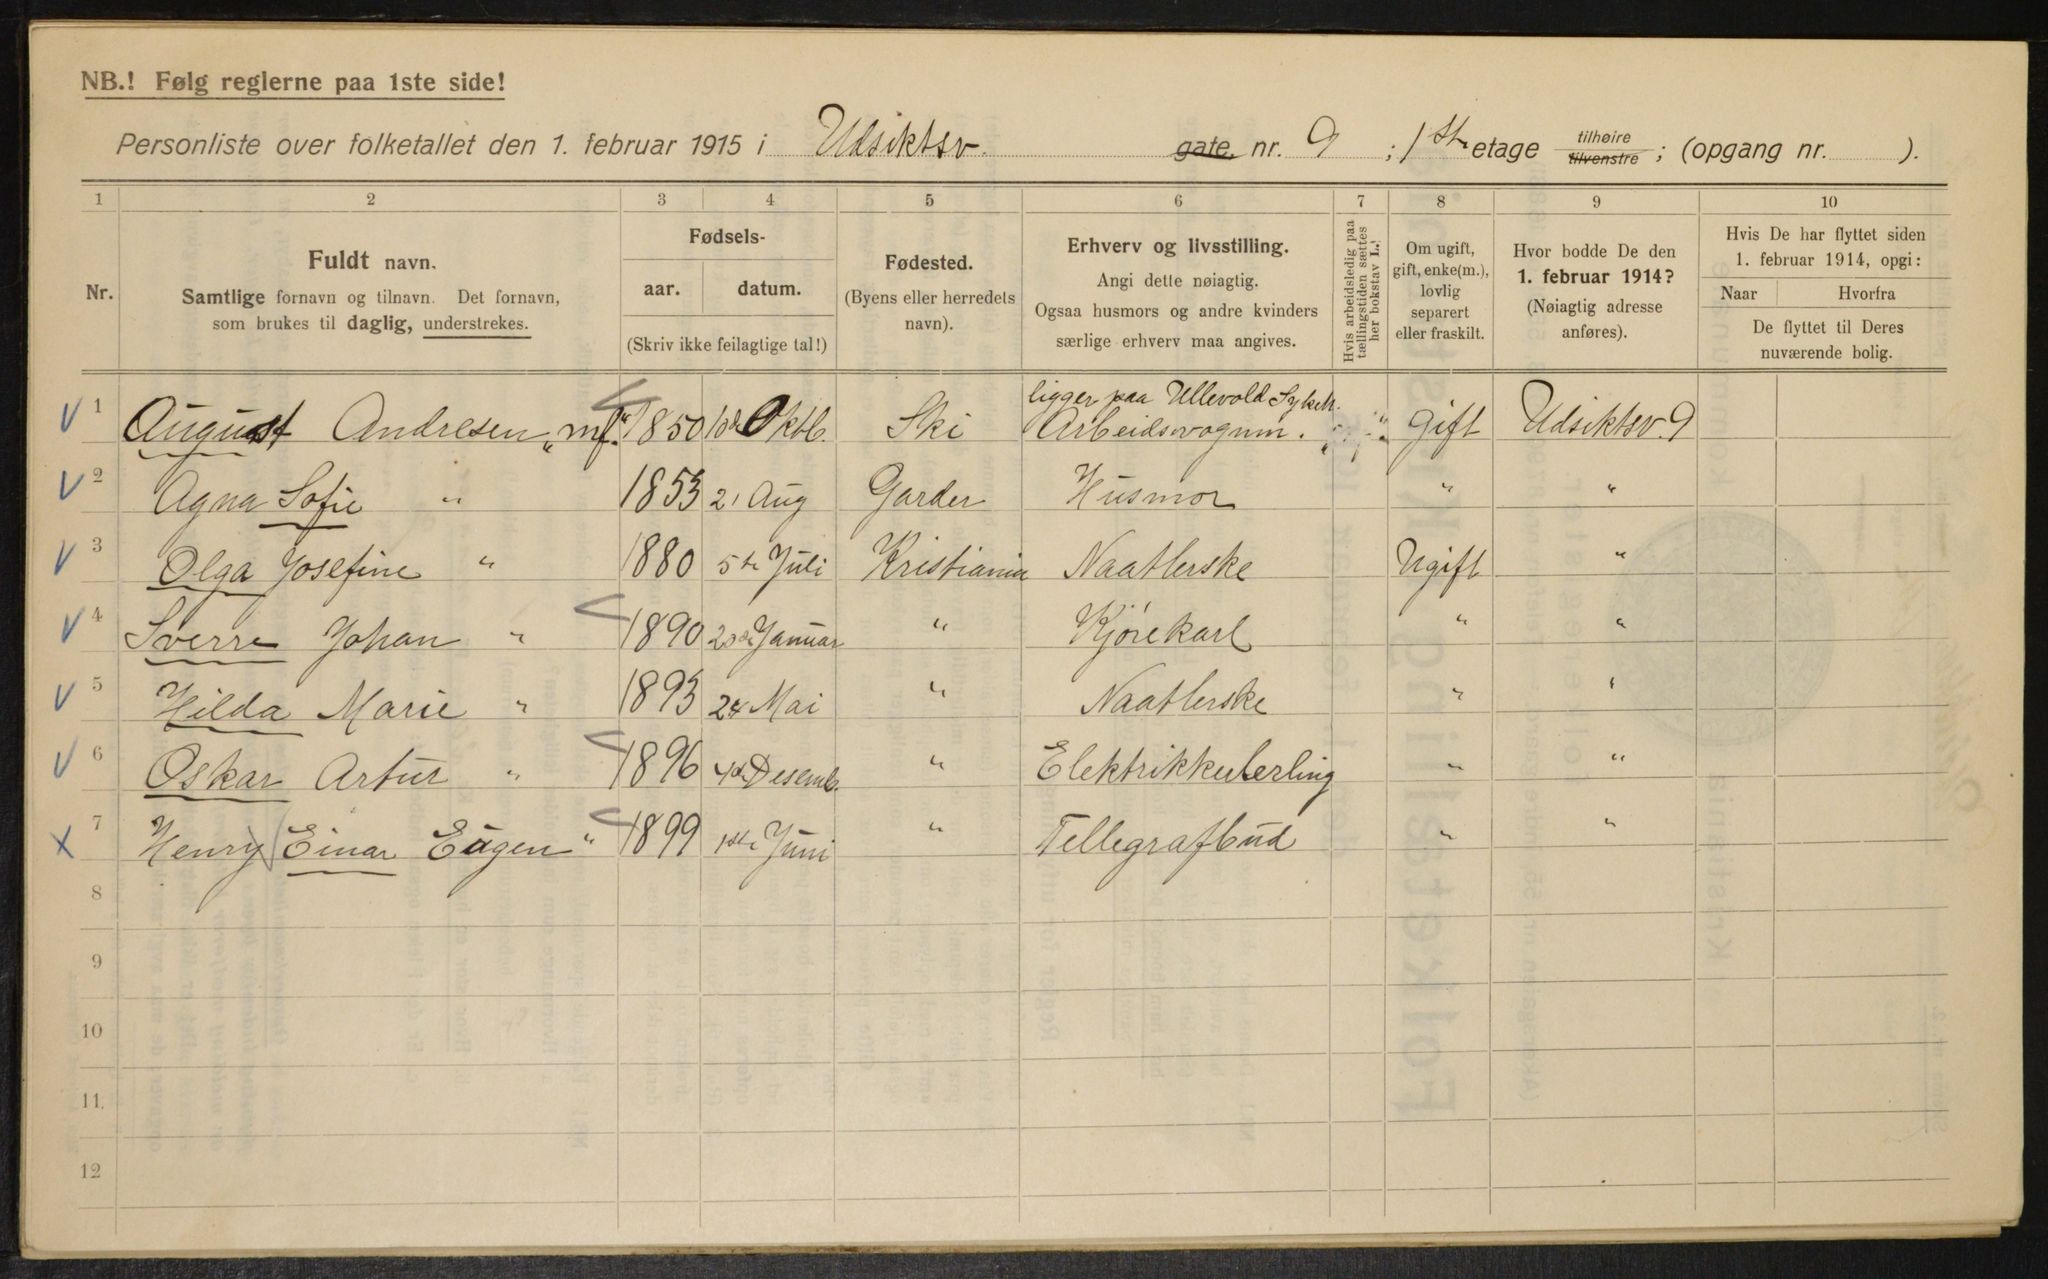 NB.! Følg reglerne paa 1ste side!
Personliste over folketallet den 1. februar 1915 i Udsiktsv. gate, nr. 9 ; 1ste etage tilhøire tilvenstre ; (opgang nr. ).
1 2 3 4 5 6 7 8 9 10
Nr.
Fuldt navn.
Samtlige fornavn og tilnavn. Det fornavn,
som brukes til daglig, understrekes.
Fødsels-
aar. datum.
(Skriv ikke feilagtige tal!)
Fødested.
(Byens eller herredets
navn).
Erhverv og livsstilling.
Angi dette nøiagtig.
Ogsaa husmors og andre kvinders
særlige erhverv maa angives.
Hvis arbeidsledig paa
tællingstiden sættes
her bokstav L.!
Om ugift,
gift, enke(m.),
lovlig
separert
eller fraskilt.
Hvor bodde De den
1. februar 1914?
(Nøiagtig adresse
anføres).
Hvis De har flyttet siden
1. februar 1914, opgi:
Naar Hvorfra
De flyttet til Deres
nuværende bolig.
ligger paa Ullevold Sykeh.
1 August Andresen „mf“ 1850 10de Oktb. Ski Arbeidsvognm. gift Udsiktsv. 9
2 Agna Sofie " 1853 21 Aug Garder Husmor " "
3 Olga Josefine " 1880 5te Juli Kristiania Naatlerske Ugift "
4 Sverre Johan " 1890 20de Januar " Kjørekarl " "
5 Hilda Marie " 1893 24 Mai " Naatlerske " "
6 Oskar Artur " 1896 4de Desemb. " Elektrikkerlerling " "
7 Henry Einar Eugen " 1899 1ste Juni " Tellegrafbud " "
8
9
10
11
12